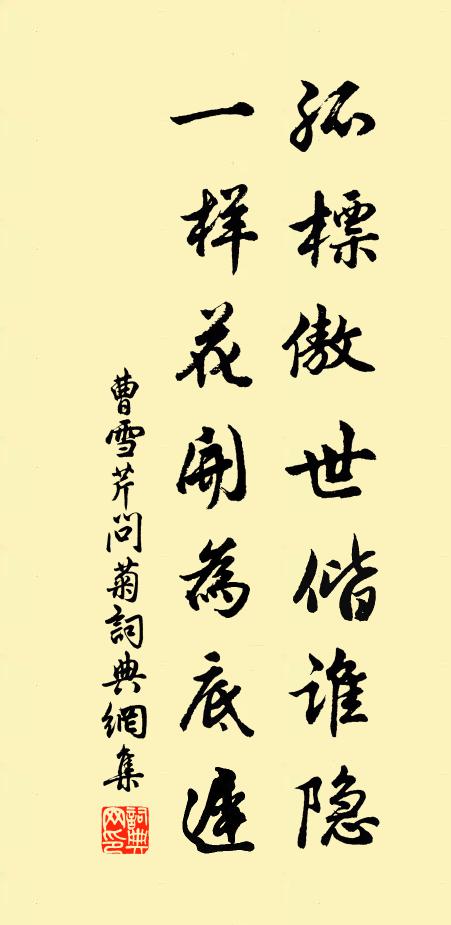 孤標傲世偕谁隐
一样花開為底遲
曹雪芹問菊詞典網集
詞典网印